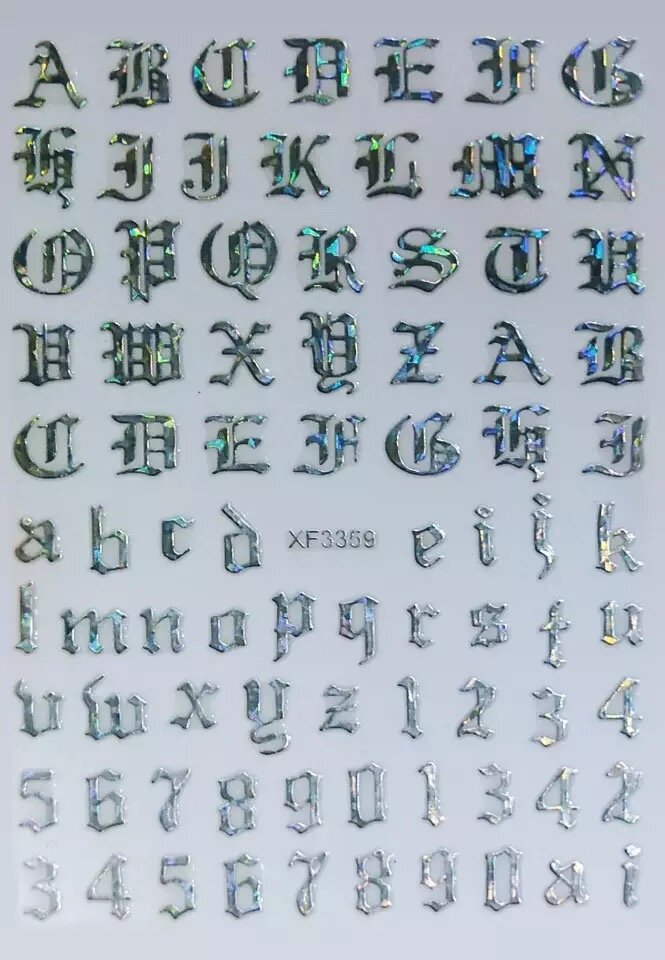 A B C D E F G
H I J K L M N
O P Q R S T U
V W X Y Z A B
C D E F G H I
a b c d XF3369 e i j k
l m n o p q r s t u
v w x y z 1 2 3 4
5 6 7 8 9 0 1 3 4 2
3 4 5 6 7 8 9 0 a i